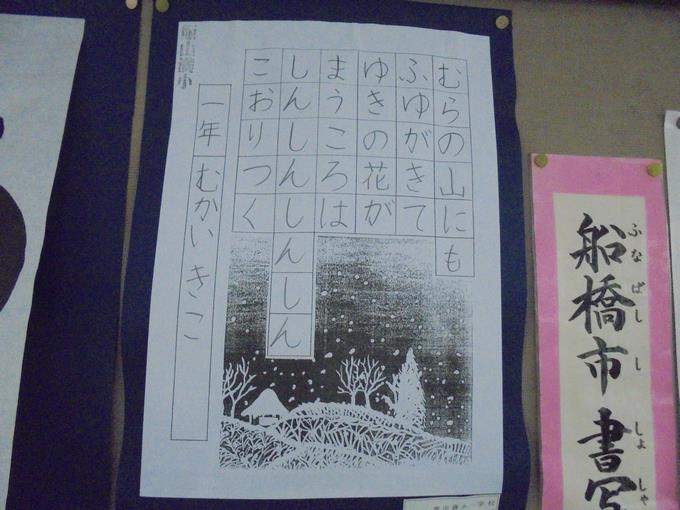 むらの山にも
ふゆがきて
ゆきの花が
まうころは
しんしんしんしん
こおりつく
一年 むかい きこ
船橋市書写
ふなばしししょしゃ